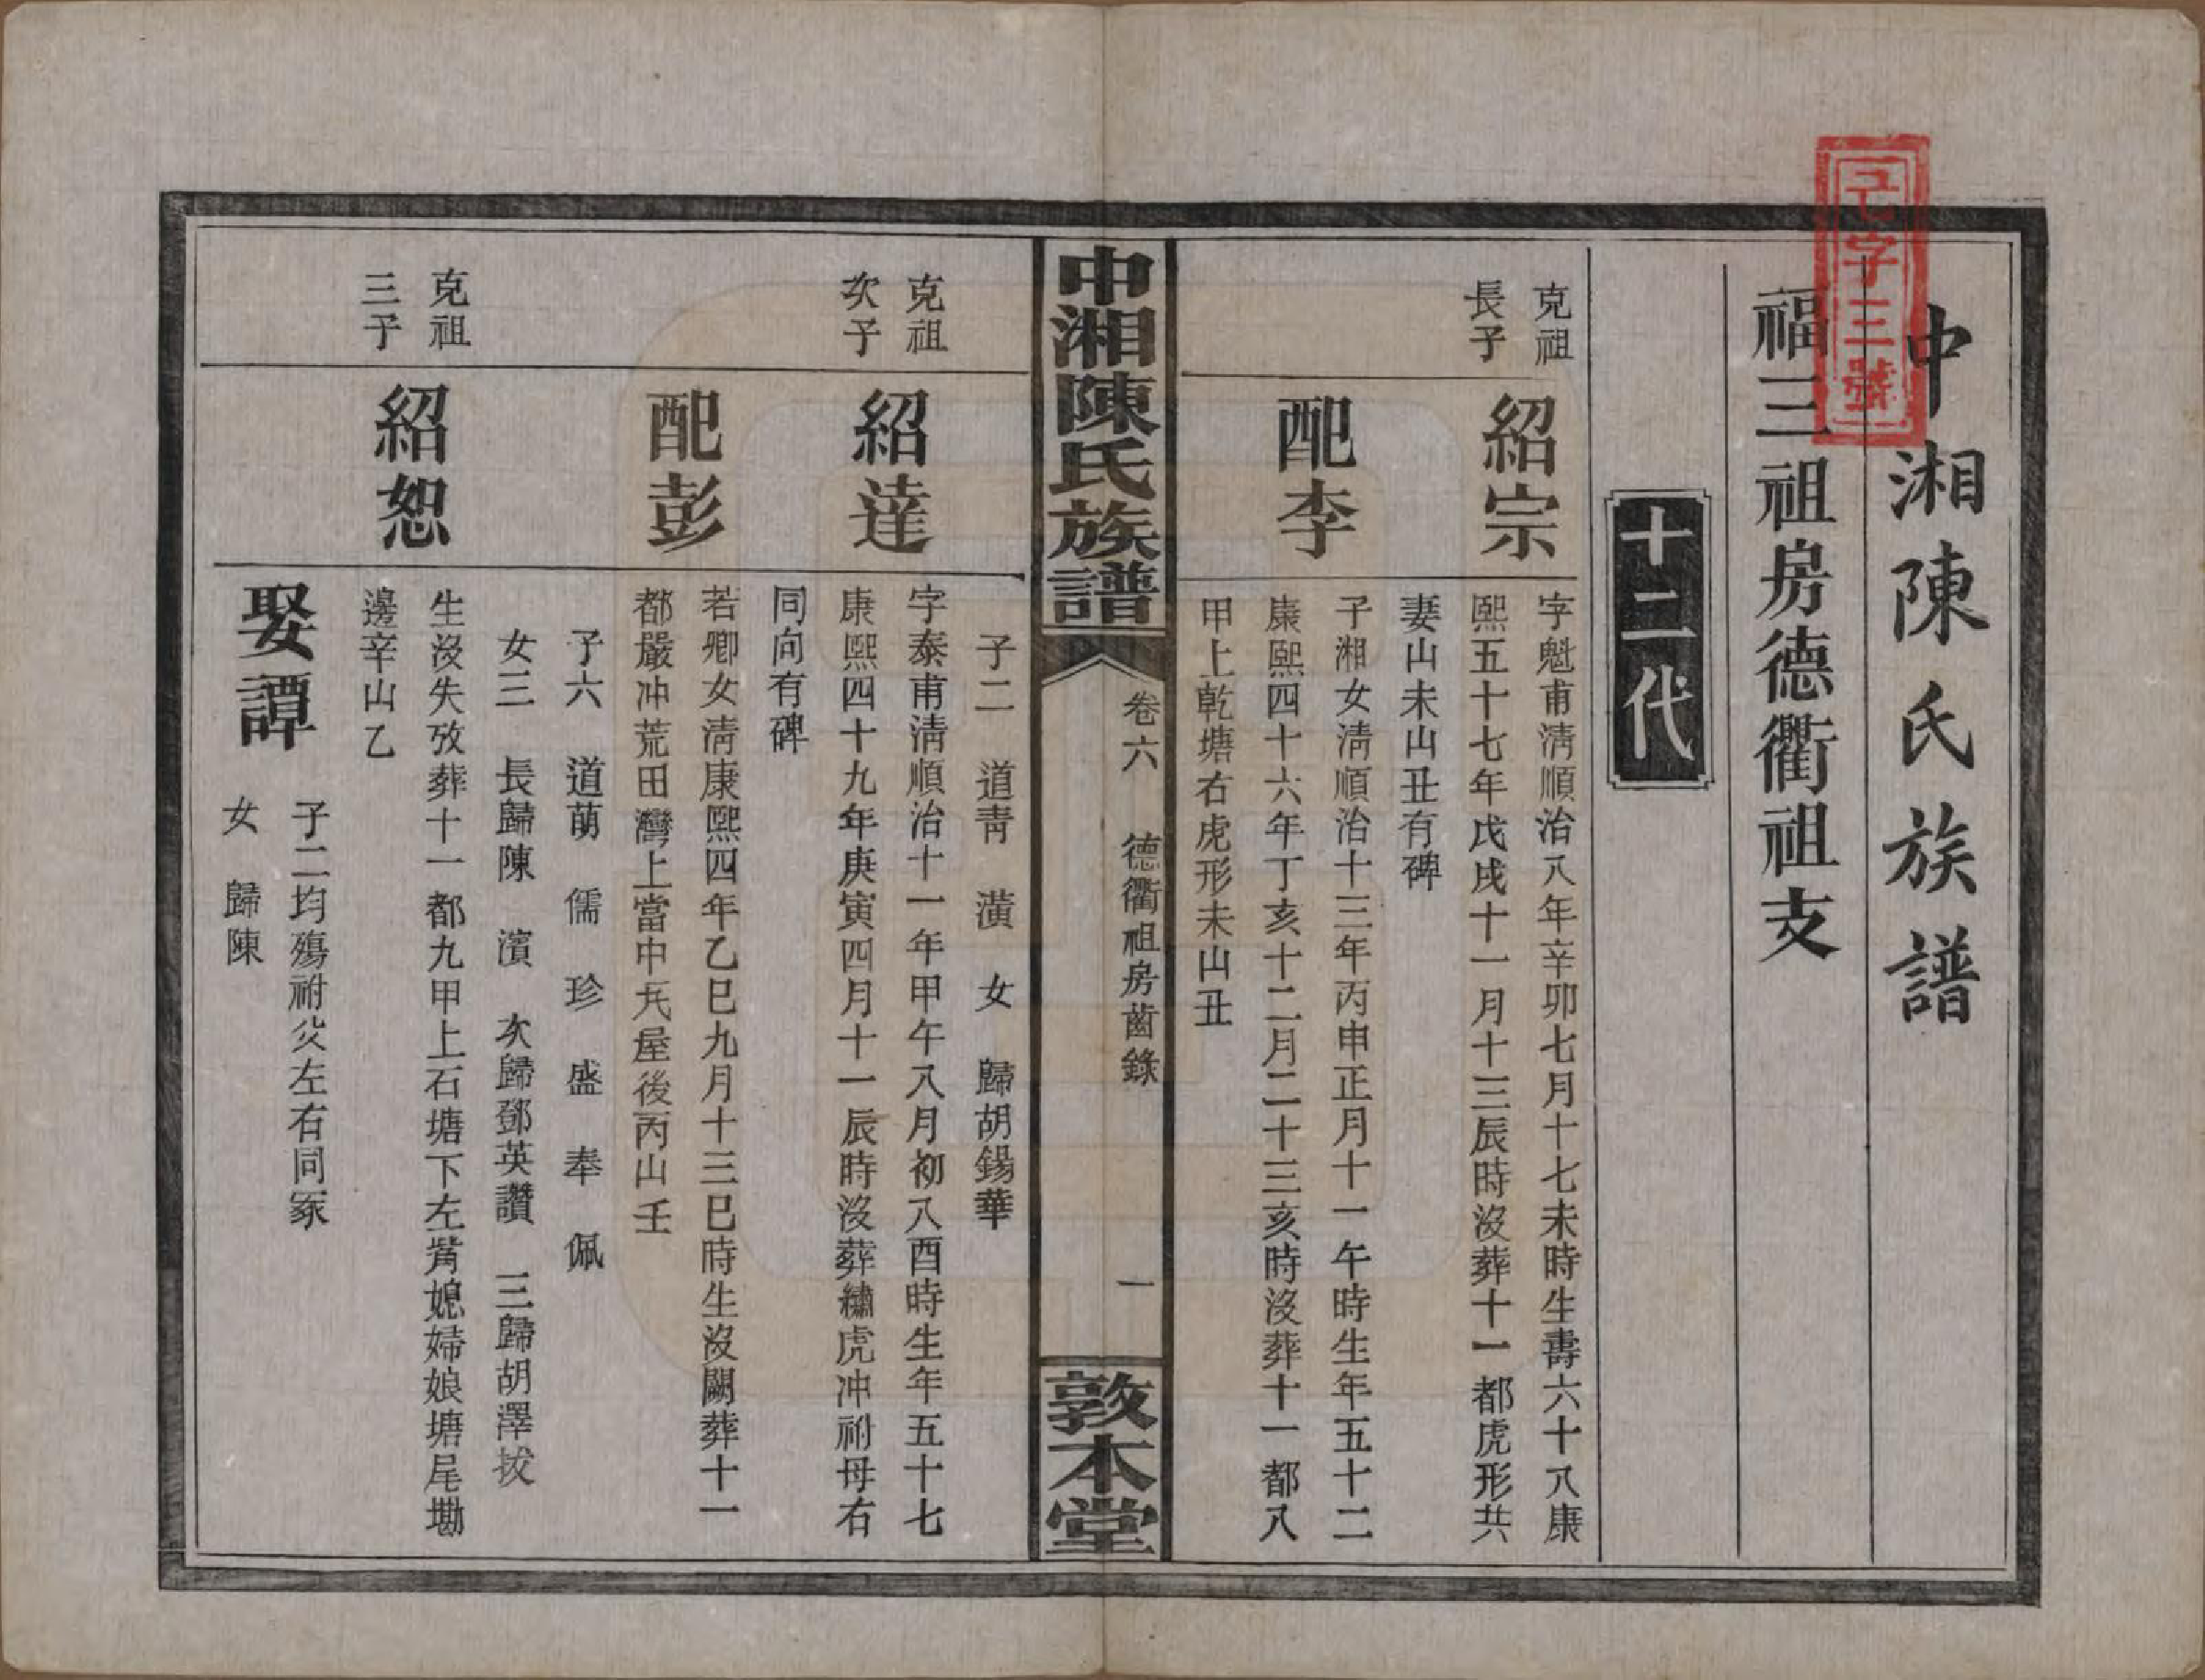 中湘陳氏族譜
己字三號
福三祖房德衢祖支
十二代
克祖
長子
紹宗
字魁甫淸順治八年辛卯七月十七未時生壽六十八康
熙五十七年戊戌十一月十三辰時沒葬十一都虎形共
妻山未山丑有碑
配李
子湘女淸順治十三年丙申正月十一午時生年五十二
康熙四十六年丁亥十二月二十三亥時沒葬十一都八
甲上乾塘右虎形未山丑
中湘陳氏族譜
卷六 德衢祖房齒錄 一
敦本堂
子二 道靑 潢 女 歸胡錫華
克祖
次子
紹達
字泰甫淸順治十一年甲午八月初八酉時生年五十七
康熙四十九年庚寅四月十一辰時沒葬繡虎冲祔母右
同向有碑
配彭
若卿女淸康熙四年乙巳九月十三巳時生沒闕葬十一
都嚴冲荒田灣上當中兲屋後丙山壬
子六 道萠 儒 珍 盛 奉 佩
女三 長歸陳 濱 次歸鄧英讚 三歸胡澤拔
克祖
三子
紹恕
生沒失攷葬十一都九甲上石塘下左觜媳婦娘塘尾墈
邊辛山乙
娶譚
子二均殤祔父左右同冢
女 歸陳